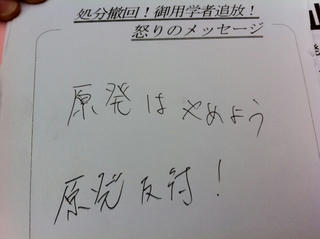 処分撤回！御用学者追放！
怒りのメッセージ
原発はやめよう
原発反対！
山